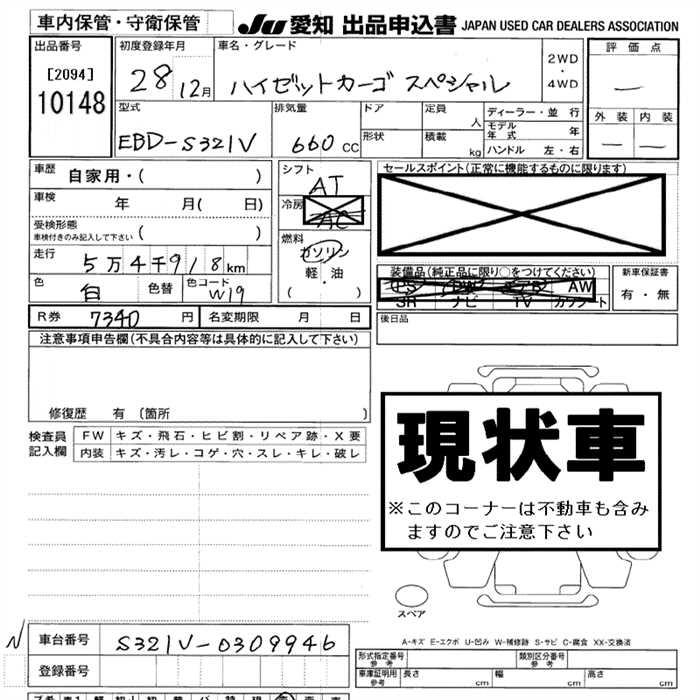 車内保管・守衛保管 JU 愛知 出品申込書 JAPAN USED CAR DEALERS ASSOCIATION
出品番号 初度登録年月 車名・グレード 評価点
[2094] 28 12月 ハイゼットカーゴ スペシャル 2WD・4WD —
10148
型式 排気量 ドア 定員 人 ディーラー・並行 外装 内装
EBD-S321V 660 CC 形状 積載 kg モデル年式 年 — —
ハンドル 左・右
車歴 自家用・( ) シフト AT セールスポイント(正常に機能するものに限ります)
車検 年 月( 日) 冷房 AC
受検形態 車検付きのみ記入して下さい ( ) 燃料 ガソリン
走行 5万4千918km 軽・油
色 白 色替 色コード W19 ( )
装備品(純正品に限り○をつけてください) 新車保証書
PS PW エアB AW 有・無
SR ナビ TV カワシート
R券 7340 円 名変期限 月 日 後日品
注意事項申告欄(不具合内容等は具体的に記入して下さい)
修復歴 有 〔箇所 〕
検査員記入欄 FW キズ・飛石・ヒビ割・リペア跡・X要
内装 キズ・汚レ・コゲ・穴・スレ・キレ・破レ
現状車
※このコーナーは不動車も含み
ますのでご注意下さい
スペア
A-キズ E-エクボ U-凹み W-補修跡 S-サビ C-腐食 XX-交換済
N 車台番号 S321V-0309946
登録番号
形式指定番号 参考 類別区分番号 参考
車庫証明用 参考 長さ cm 幅 cm 高さ cm